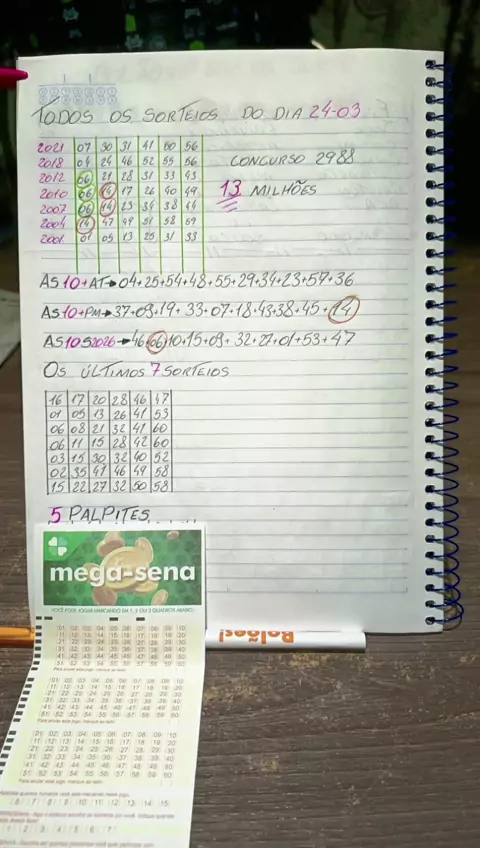 TODOS OS SORTEIOS DO DIA 24-03
2021 07 30 31 41 50 56
2018 04 24 46 52 55 56
CONCURSO 2988
2012 06 21 28 31 33 43
2010 06 14 17 26 40 49
13 MILHÕES
2007 06 14 23 34 38 44
2004 14 47 49 51 58 59
2001 01 05 13 25 31 33
AS 10+AT→04+25+54+48+55+29+34+23+57+36
AS 10+PM→37+09+19+33+07+18+43+38+45+14
AS 10S2026→46+06+10+15+09+32+27+01+53+47
OS ÚLTIMOS 7 SORTEIOS
16 17 20 28 46 47
01 05 13 26 41 53
06 08 21 32 41 60
06 11 15 28 42 60
03 15 30 32 40 52
02 35 47 46 49 58
15 22 27 32 50 58
5 PALPITES
mega-sena
VOCÊ PODE JOGAR MARCANDO EM 1, 2 OU 3 QUADROS ABAIXO:
Bolões!
01 02 03 04 05 06 07 08 09 10
11 12 13 14 15 16 17 18 19 20
21 22 23 24 25 26 27 28 29 30
31 32 33 34 35 36 37 38 39 40
41 42 43 44 45 46 47 48 49 50
51 52 53 54 55 56 57 58 59 60
Para anular este jogo, marque ao lado:
01 02 03 04 05 06 07 08 09 10
11 12 13 14 15 16 17 18 19 20
21 22 23 24 25 26 27 28 29 30
31 32 33 34 35 36 37 38 39 40
41 42 43 44 45 46 47 48 49 50
51 52 53 54 55 56 57 58 59 60
Para anular este jogo, marque ao lado:
01 02 03 04 05 06 07 08 09 10
11 12 13 14 15 16 17 18 19 20
21 22 23 24 25 26 27 28 29 30
31 32 33 34 35 36 37 38 39 40
41 42 43 44 45 46 47 48 49 50
51 52 53 54 55 56 57 58 59 60
Para anular este jogo, marque ao lado:
quantos números você está marcando neste jogo.
7 8 9 10 11 12 13 14 15
1 2 3 4 5 6 7